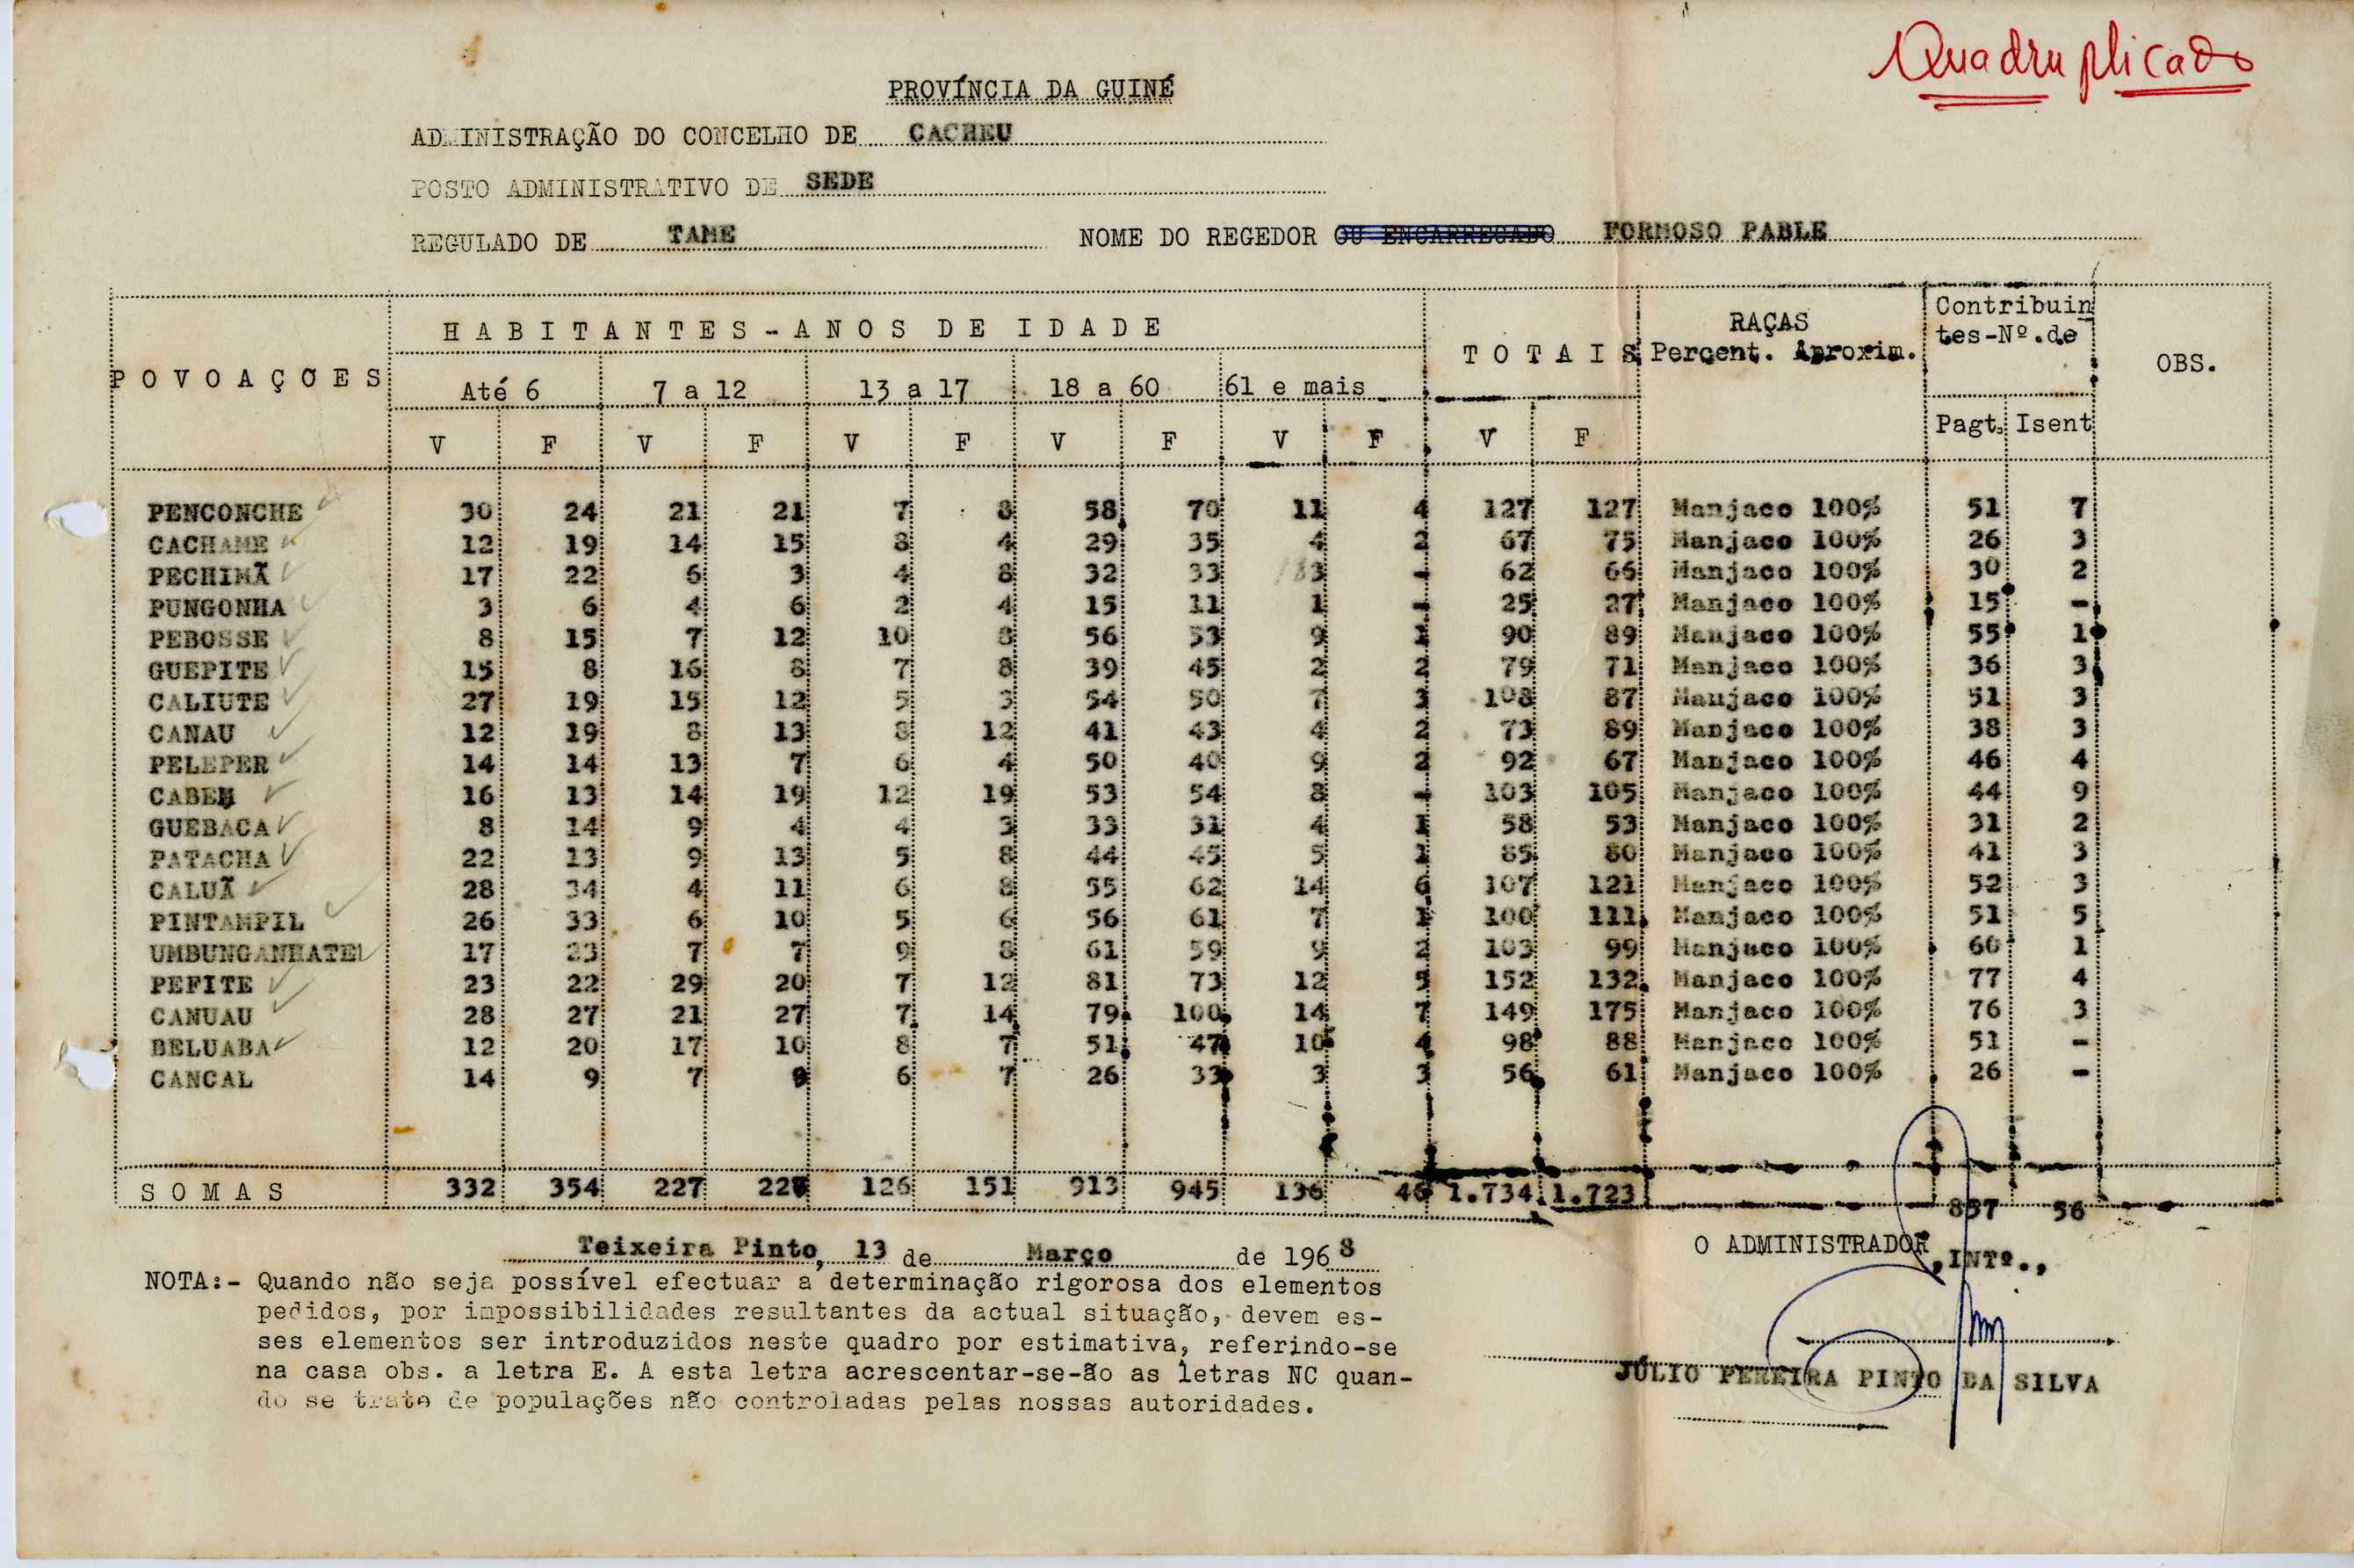 Quadruplicado
PROVÍNCIA DA GUINÉ
ADMINISTRAÇÃO DO CONCELHO DE CACHEU
POSTO ADMINISTRATIVO DE SEDE
REGULADO DE TAME NOME DO REGEDOR OU ENCARREGADO FORMOSO PABLE
POVOAÇÕES HABITANTES-ANOS DE IDADE TOTAIS RAÇAS Percent. Aproxim. Contribuin tes-Nº.de OBS.
Até 6 7 a 12 13 a 17 18 a 60 61 e mais
V F V F V F V F V F V F Pagt. Isent
PENCONCHE 30 24 21 21 7 8 58 70 11 4 127 127 Manjaco 100% 51 7
CACHAME 12 19 14 15 8 4 29 35 4 2 67 75 Manjaco 100% 26 3
PECHIMÃ 17 22 6 3 4 8 32 33 3 - 62 66 Manjaco 100% 30 2
PUNGONHA 3 6 4 6 2 4 15 11 1 - 25 27 Manjaco 100% 15 -
PEBOSSE 8 15 7 12 10 8 56 53 9 1 90 89 Manjaco 100% 55 1
GUEPITE 15 8 16 8 7 8 39 45 2 2 79 71 Manjaco 100% 36 3
CALIUTE 27 19 15 12 5 3 54 50 7 3 108 87 Manjaco 100% 51 3
CANAU 12 19 8 13 8 12 41 43 4 2 73 89 Manjaco 100% 38 3
PELEPER 14 14 13 7 6 4 50 40 9 2 92 67 Manjaco 100% 46 4
CABEM 16 13 14 19 12 19 53 54 8 - 103 105 Manjaco 100% 44 9
GUEBACA 8 14 9 4 4 3 33 31 4 1 58 53 Manjaco 100% 31 2
PATACHA 22 13 9 13 5 8 44 45 5 1 85 80 Manjaco 100% 41 3
CALUÃ 28 34 4 11 6 8 55 62 14 6 107 121 Manjaco 100% 52 3
PINTAMPIL 26 33 6 10 5 6 56 61 7 1 100 111 Manjaco 100% 51 5
UMBUNGANHATE 17 23 7 7 9 8 61 59 9 2 103 99 Manjaco 100% 60 1
PEFITE 23 22 29 20 7 12 81 73 12 5 152 132 Manjaco 100% 77 4
CANUAU 28 27 21 27 7 14 79 100 14 7 149 175 Manjaco 100% 76 3
BELUABA 12 20 17 10 8 7 51 47 10 4 98 88 Manjaco 100% 51 -
CANCAL 14 9 7 9 6 7 26 33 3 3 56 61 Manjaco 100% 26 -
SOMAS 332 354 227 227 126 151 913 945 136 46 1.734 1.723 857 56
Teixeira Pinto, 13 de Março de 1968
O ADMINISTRADOR, INTº.,
NOTA:- Quando não seja possível efectuar a determinação rigorosa dos elementos
pedidos, por impossibilidades resultantes da actual situação, devem es-
ses elementos ser introduzidos neste quadro por estimativa, referindo-se
na casa obs. a letra E. A esta letra acrescentar-se-ão as letras NC quan-
do se trate de populações não controladas pelas nossas autoridades.
JÚLIO PEREIRA PINTO DA SILVA